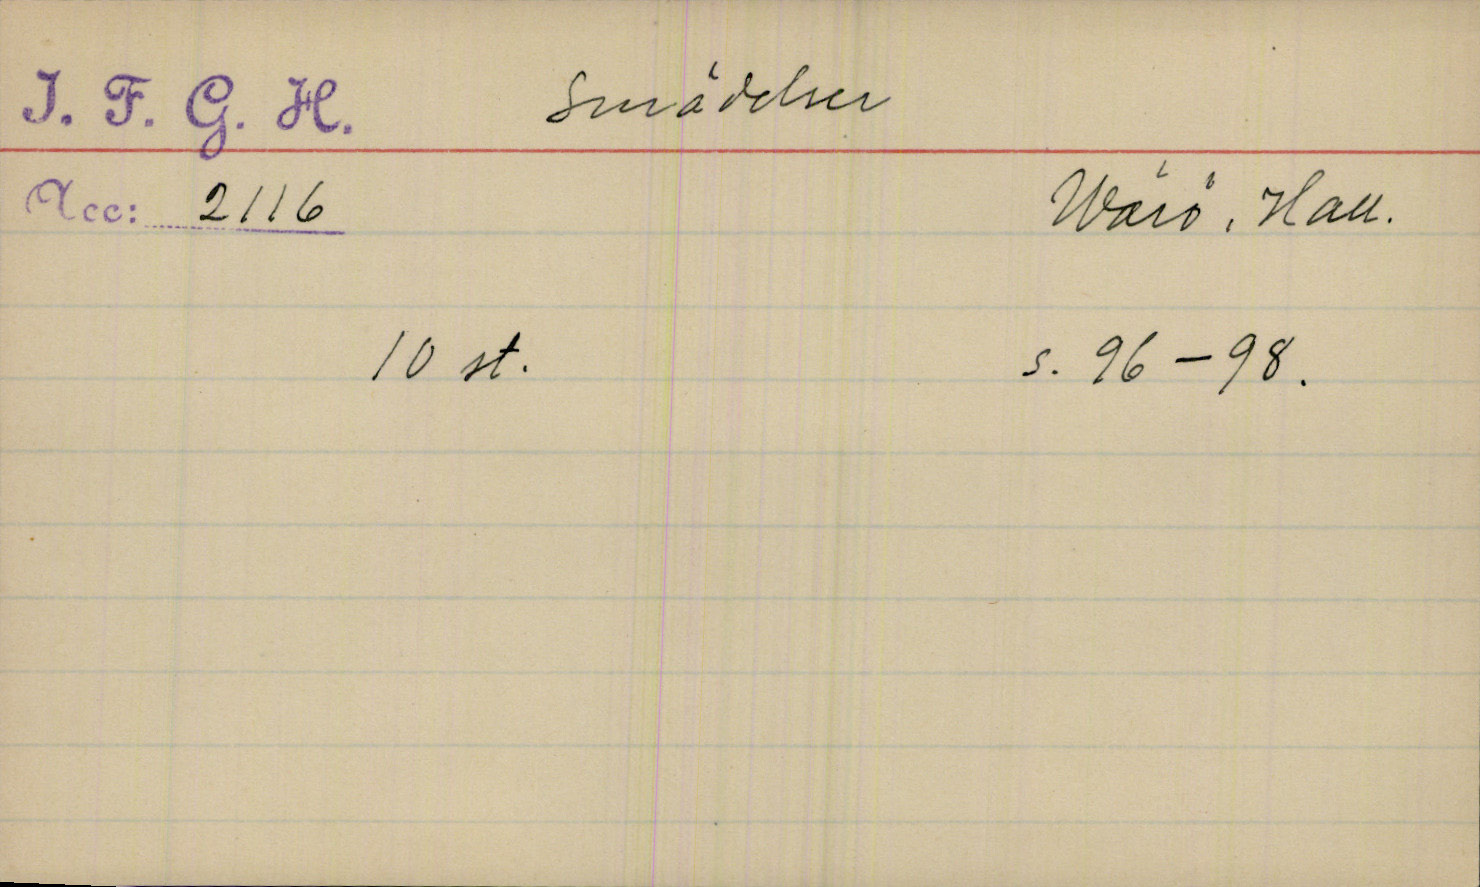 I. F. G. H. Smädelser
Acc: 2116 Wärö, Hall.
10 st. s. 96-98.